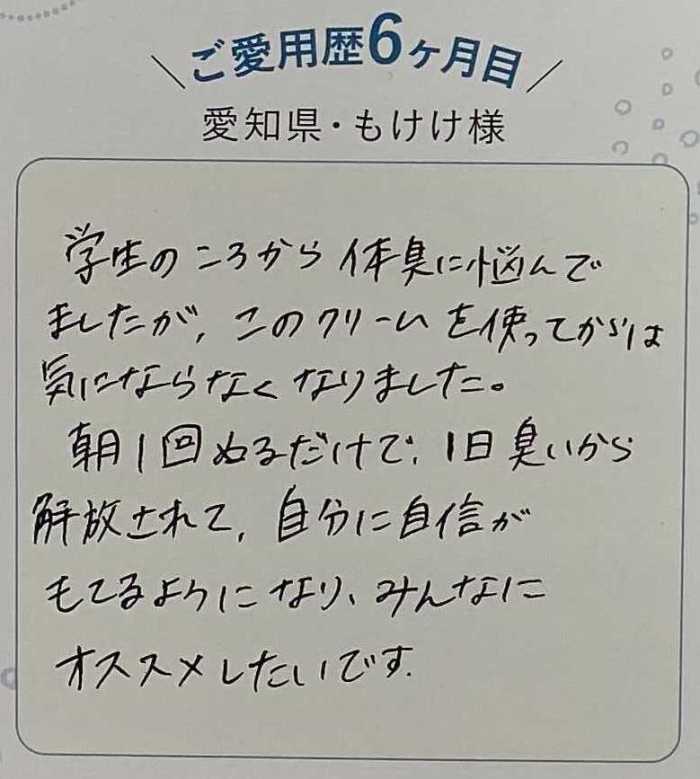 ご愛用歴6ヶ月目
愛知県・もけけ様
学生のころから体臭に悩んで
ましたが、このクリームを使ってからは
気にならなくなりました。
朝1回ぬるだけで、1日臭いから
解放されて、自分に自信が
もてるようになり、みんなに
オススメしたいです.